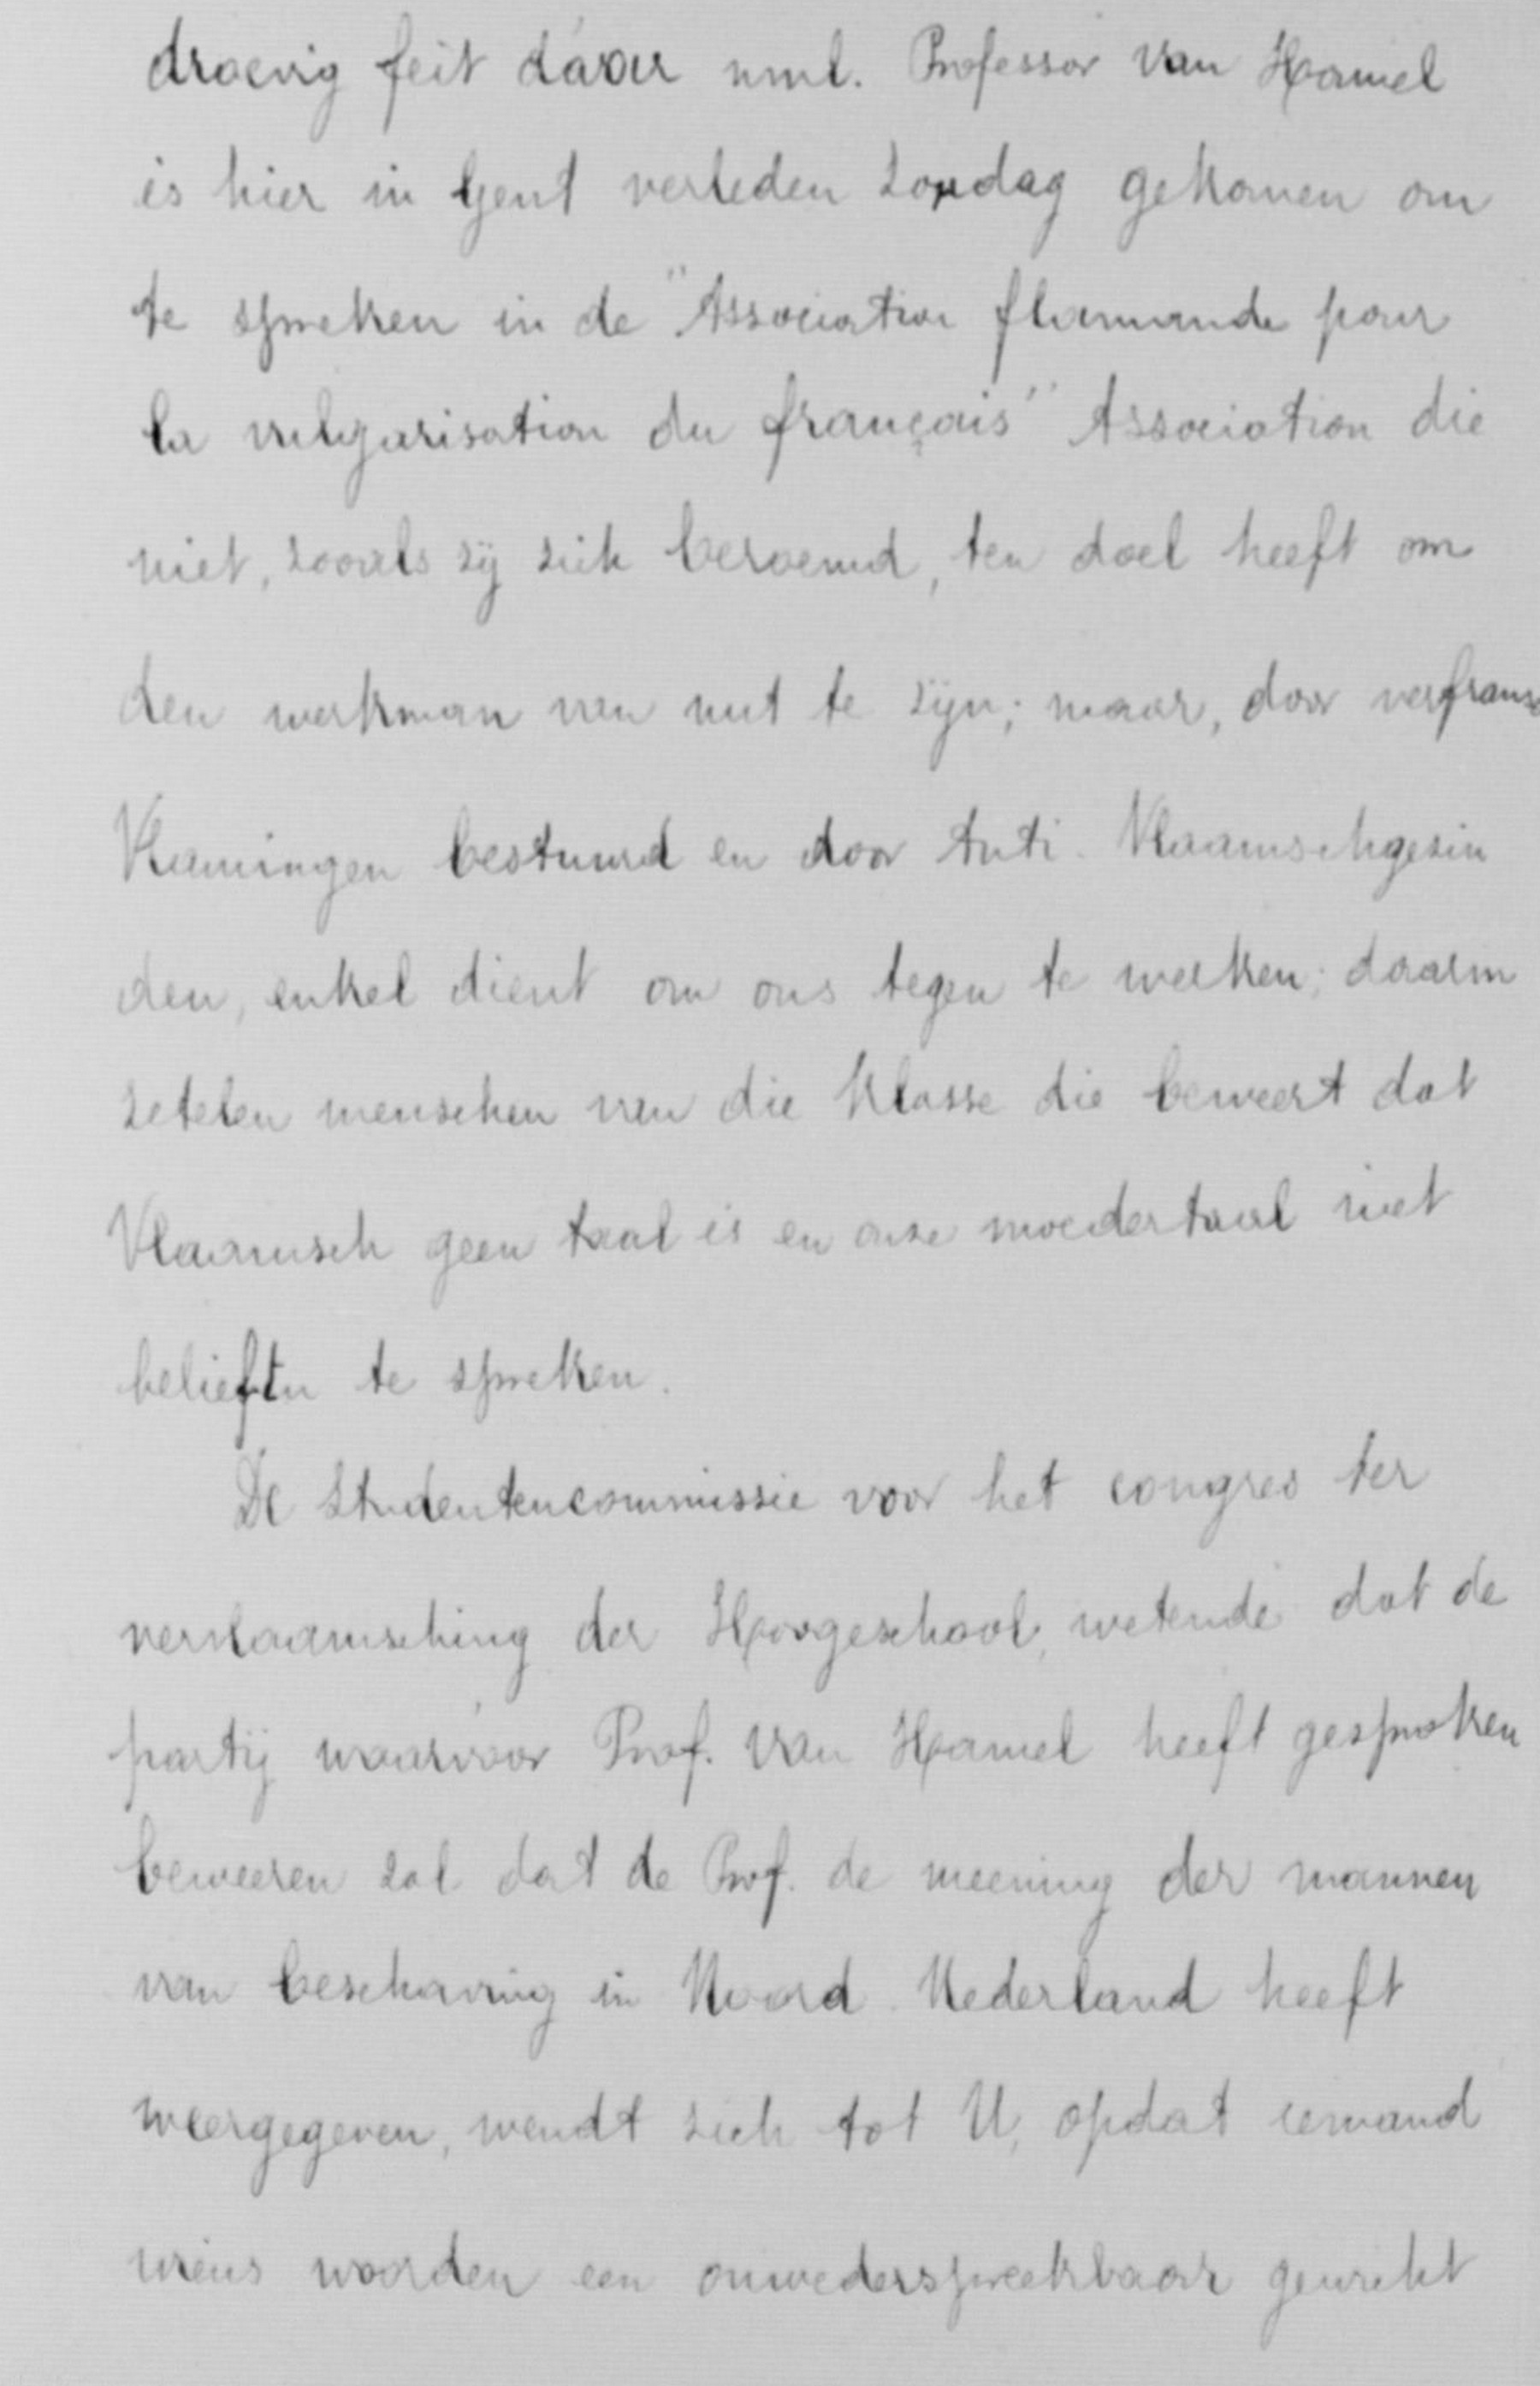 droevig feit dáár nml. Professor Van Hamel
is hier in Gent verleden Zondag gekomen om
te spreken in de "Association flamande pour
la vulgarisation du français" Association die
niet, zooals zij zich beroemd, ten doel heeft om
den werkman van nut te zijn; maar, door verfransc
Vlamingen bestuurd en door Anti-Vlaamschgezin
den, enkel dient om ons tegen te werken; daarin
zetelen menschen van die klasse die beweert dat
Vlaamsch geen taal is en onze moedertaal niet
beliefen te spreken.
De Studentencommissie voor het congres ter
vervlaamsching der Hoogeschool, wetende dat de
partij waarvóór Prof. Van Hamel heeft gesproken
beweeren zal dat de Prof. de meening der mannen
van beschaving in Noord-Nederland heeft
weergegeven, wendt zich tot U, opdat iemand
wiens woorden een onwederspreekbaar gewicht